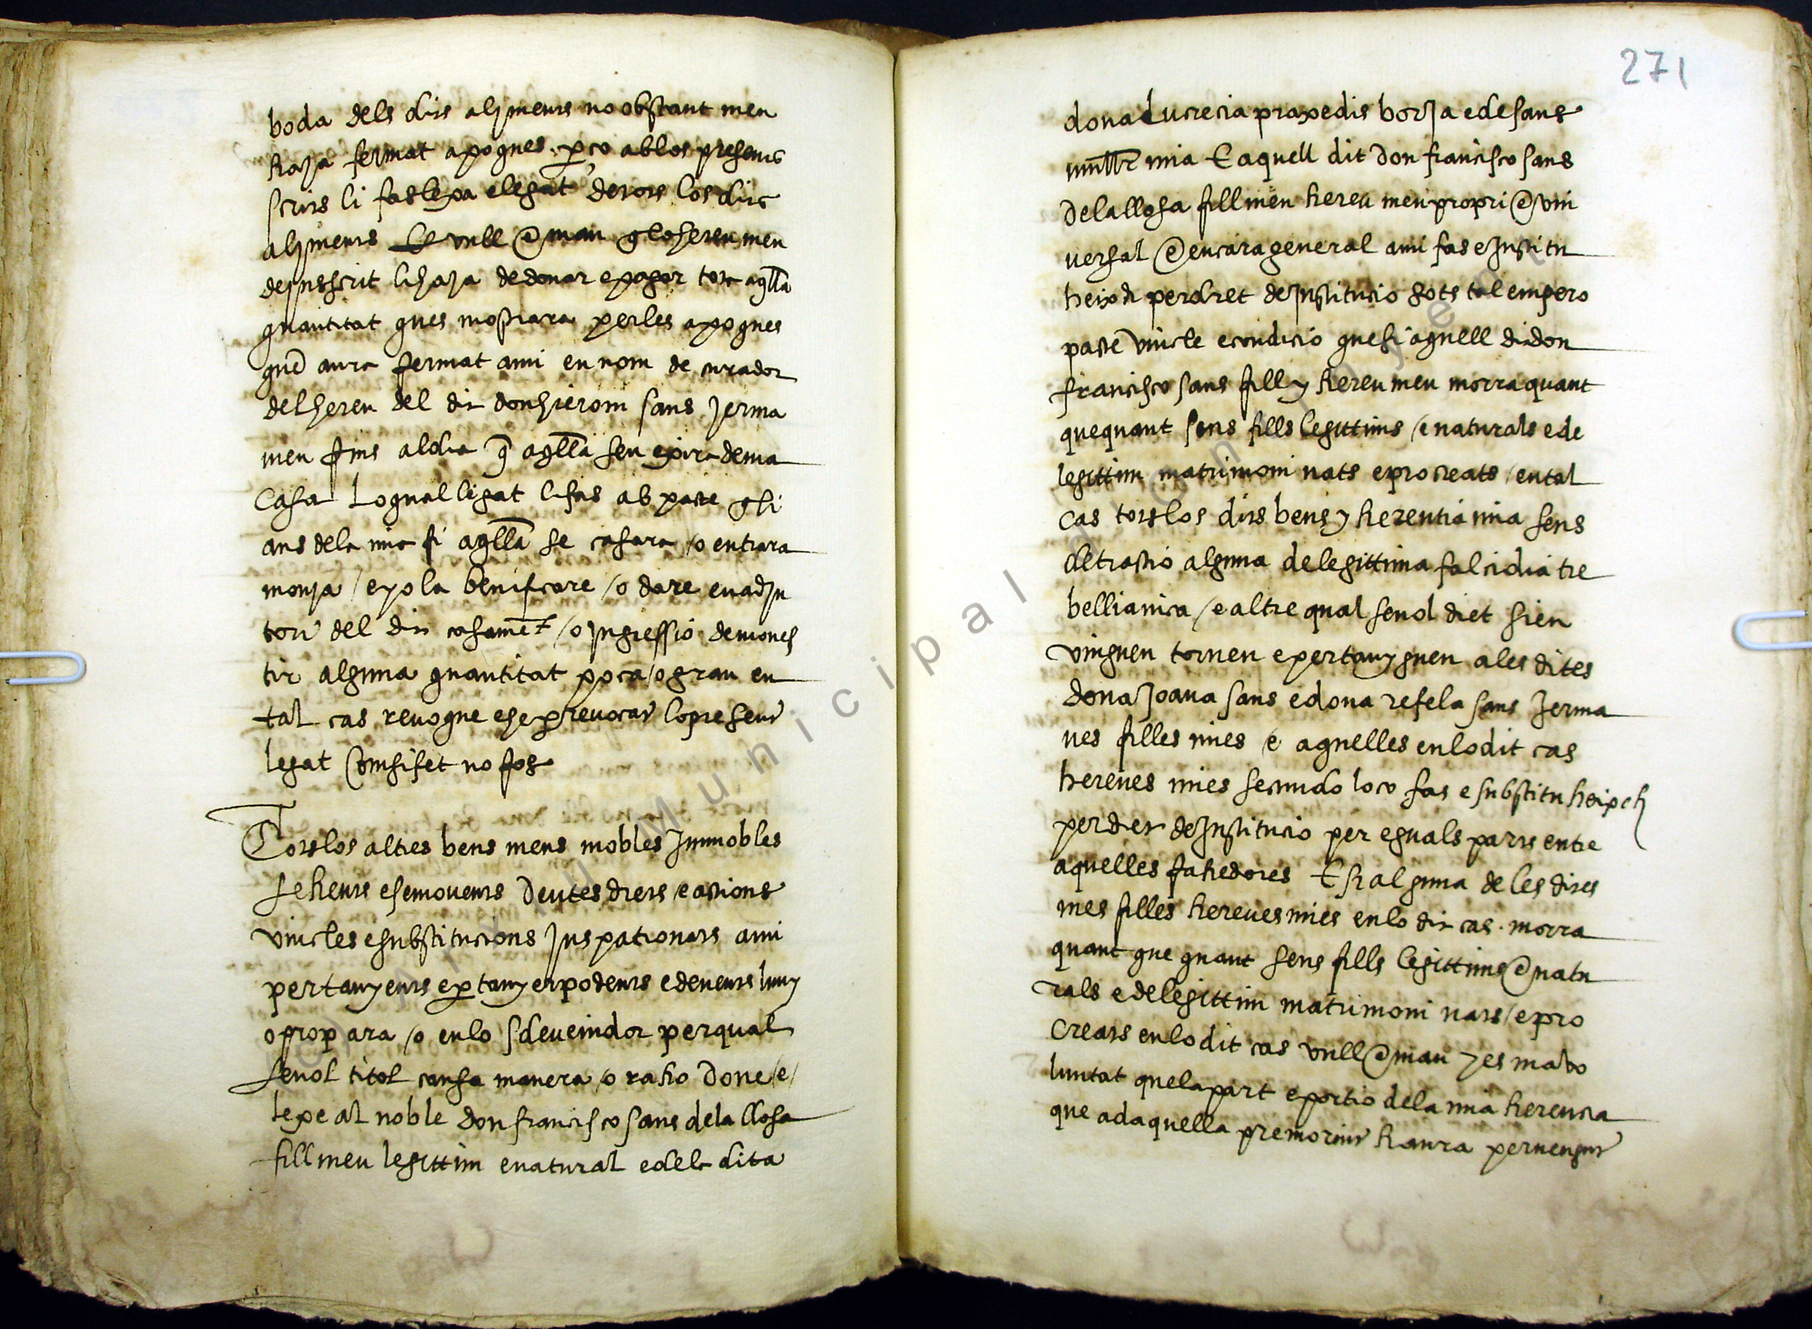 boda dels dits alimens no obstant men
haja fermat apoques perço ab los presents
scrits li fas lexa e legat de tots los dits
aliments E vull @ man q lo hereu meu
dejnsscrit li haja de donar e pagar tota aqlla
quantitat ques mostrara per les apoques
que aura fermat a mi en nom de curador
del hereu del dit don hieroni sans jerma
meu fins al dia q aqlla sen exira de ma
casa Lo qual legat li fas ab pacte q si
ans de la mia fi aqlla se casara /o entrara
monja / e yo la benificare /o dare en adju
tori del dit casament /o jngressio de mones
tir alguna quantitat poca /o gran en
tal cas revoque e he per revocat lo present
legat com si fet no fos
Tots los altres bens meus mobles Immobles
sehents e semovents Deutes drets /e actions
vincles e substitucions jus patronats a mi
pertanyents e pertanyer podents e devents luny
o prop ara /o en lo sdevenidor per qual
sevol titol causa manera /o raho Done /e/
lexe al noble don francisco sans de la llosa
fill meu legittim e natural e de la dita
271
dona Lucrecia praxedis borja e de sans
mullr mia E aquell dit don francisco sans
de la llosa fill meu hereu meu propri @ vni
versal @ encara general a mi fas e Institu
heixch per dret de Institucio sots tal empero
pacte vincle e condicio que si aquell dit don
francisco sans fill y hereu meu morra quant
que quant sens fills legittims /e naturals e de
legittim matrimoni nats e procreats / en tal
cas tots los dits bens y herentia mia sens
detractio alguna de legittima falcidia tre
bellianica /e altre qual sevol dret si en
vinguen tornen e pertanyguen a les dites
dona Joana sans e dona refela sans Jerma
nes filles mies e aquelles en lo dit cas
hereves mies secundo loco fas e substitu heixch
per dret de Institucio per eguals parts entre
aquelles fahedores E si alguna de les dites
mes filles hereves mies en lo dit cas morra
quant que quant sens fills legittims @ natu
rals e de legittim matrimoni nats /e pro
creats en lo dit cas vull @ man y es ma vo
luntat que la part e portio de la mia herencia
que ad aquella premorint haura pervengut